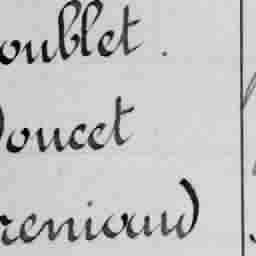 oublet.
Doucet
reniaud